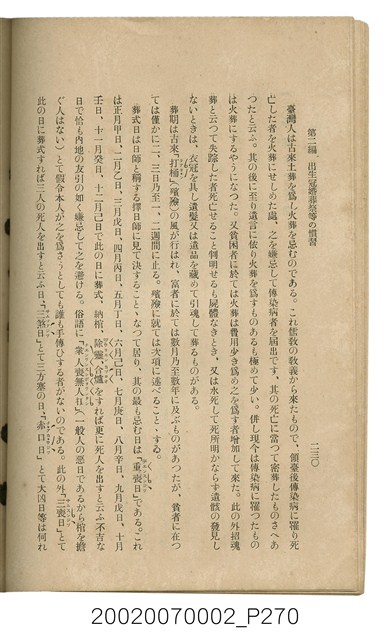 第二編　出生冠婚葬祭等の慣習
二三〇
臺灣人は古來土葬を爲し火葬を忌むのである。これ儒敎の敎義から來たもので、領臺後傳染病に罹り死
亡した者を火葬にせしめた處、之を嫌忌して傳染病者を屆出です、其の死亡に當つて密葬したものさへあ
つたと云ふ。其の後に至り遺言に依り火葬を爲すものあるも極めて少い。併し現今は傳染病に罹つたもの
は火葬にするやうになつた。又貧困者に於ては火葬は費用少き爲め之を爲す者增加して來た。此の外招魂
葬と云つて失踪した者死亡せること判明せるも屍體なきとき、又は水死して死所明かならず遺骸の發見し
ないときは、衣冠を具し遺髮又は遺品を藏めて引魂して葬るものがある。
葬期は古來「打桶」(殯殮)の風が行はれ、富者に於ては數月乃至數年に及ぶものがあつたが、貧者に在つ
ては僅かに二、三日乃至一、二週間に止る。殯殮に就ては次項に述べること丶する。
葬式日は日師と稱する擇日師に見て決すること丶なつて居り、其の最も忌む日は「重喪日」である。これ
は正月甲日、二月乙日、三月戊日、四月丙日、五月丁日、六月己日、七月庚日、八月辛日、九月戊日、十月
壬日、十一月癸日、十二月己日で此の日に葬式、納棺、除靈、合爐をすれば更に死人を出すと云ふ不吉な
日で恰も內地の友引の如く嫌忌して之を避ける。俗語に「衆人喪無人扛」(一般人の惡日であるから棺を擔
ぐ人はない)とて假令本人が之を爲さうとしても誰も手傳ひする者がないのである。此の外「三喪日」とて
此の日に葬式すれば三人の死人を出すと云ふ日、「三煞日」とて三方塞の日、「赤口日」とて大凶日等は何れ
20020070002_P270